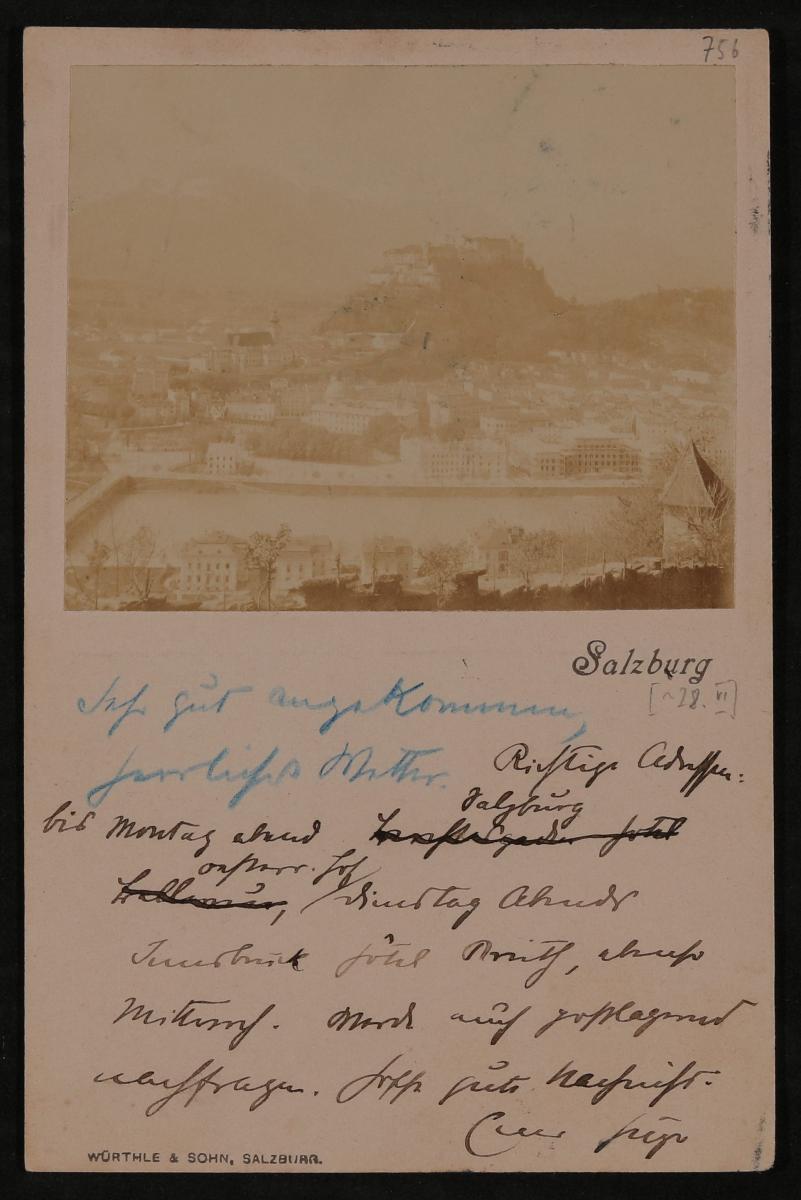 756
Salzburg
[~28. VI]
Sehr gut angekommen,
herrliches Wetter.
Richtige Adressen:
bis Montag abend Salzburg
oesterr. Hof, Dienstag Abends
Innsbruck Hôtel abenso
Mittwoch. Werde auch postlagernd
nachfragen. Hoffe gute Nachricht.
Euer Hugo
WÜRTHLE & SOHN, SALZBURG.